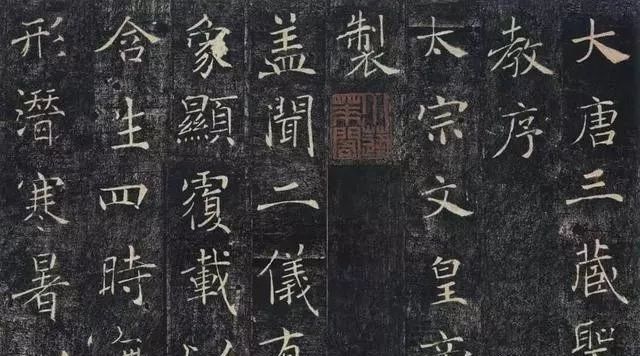 大唐三藏聖
教序
太宗文皇帝
製
蓋聞二儀有
象顯覆載以
含生四時無
形潛寒暑